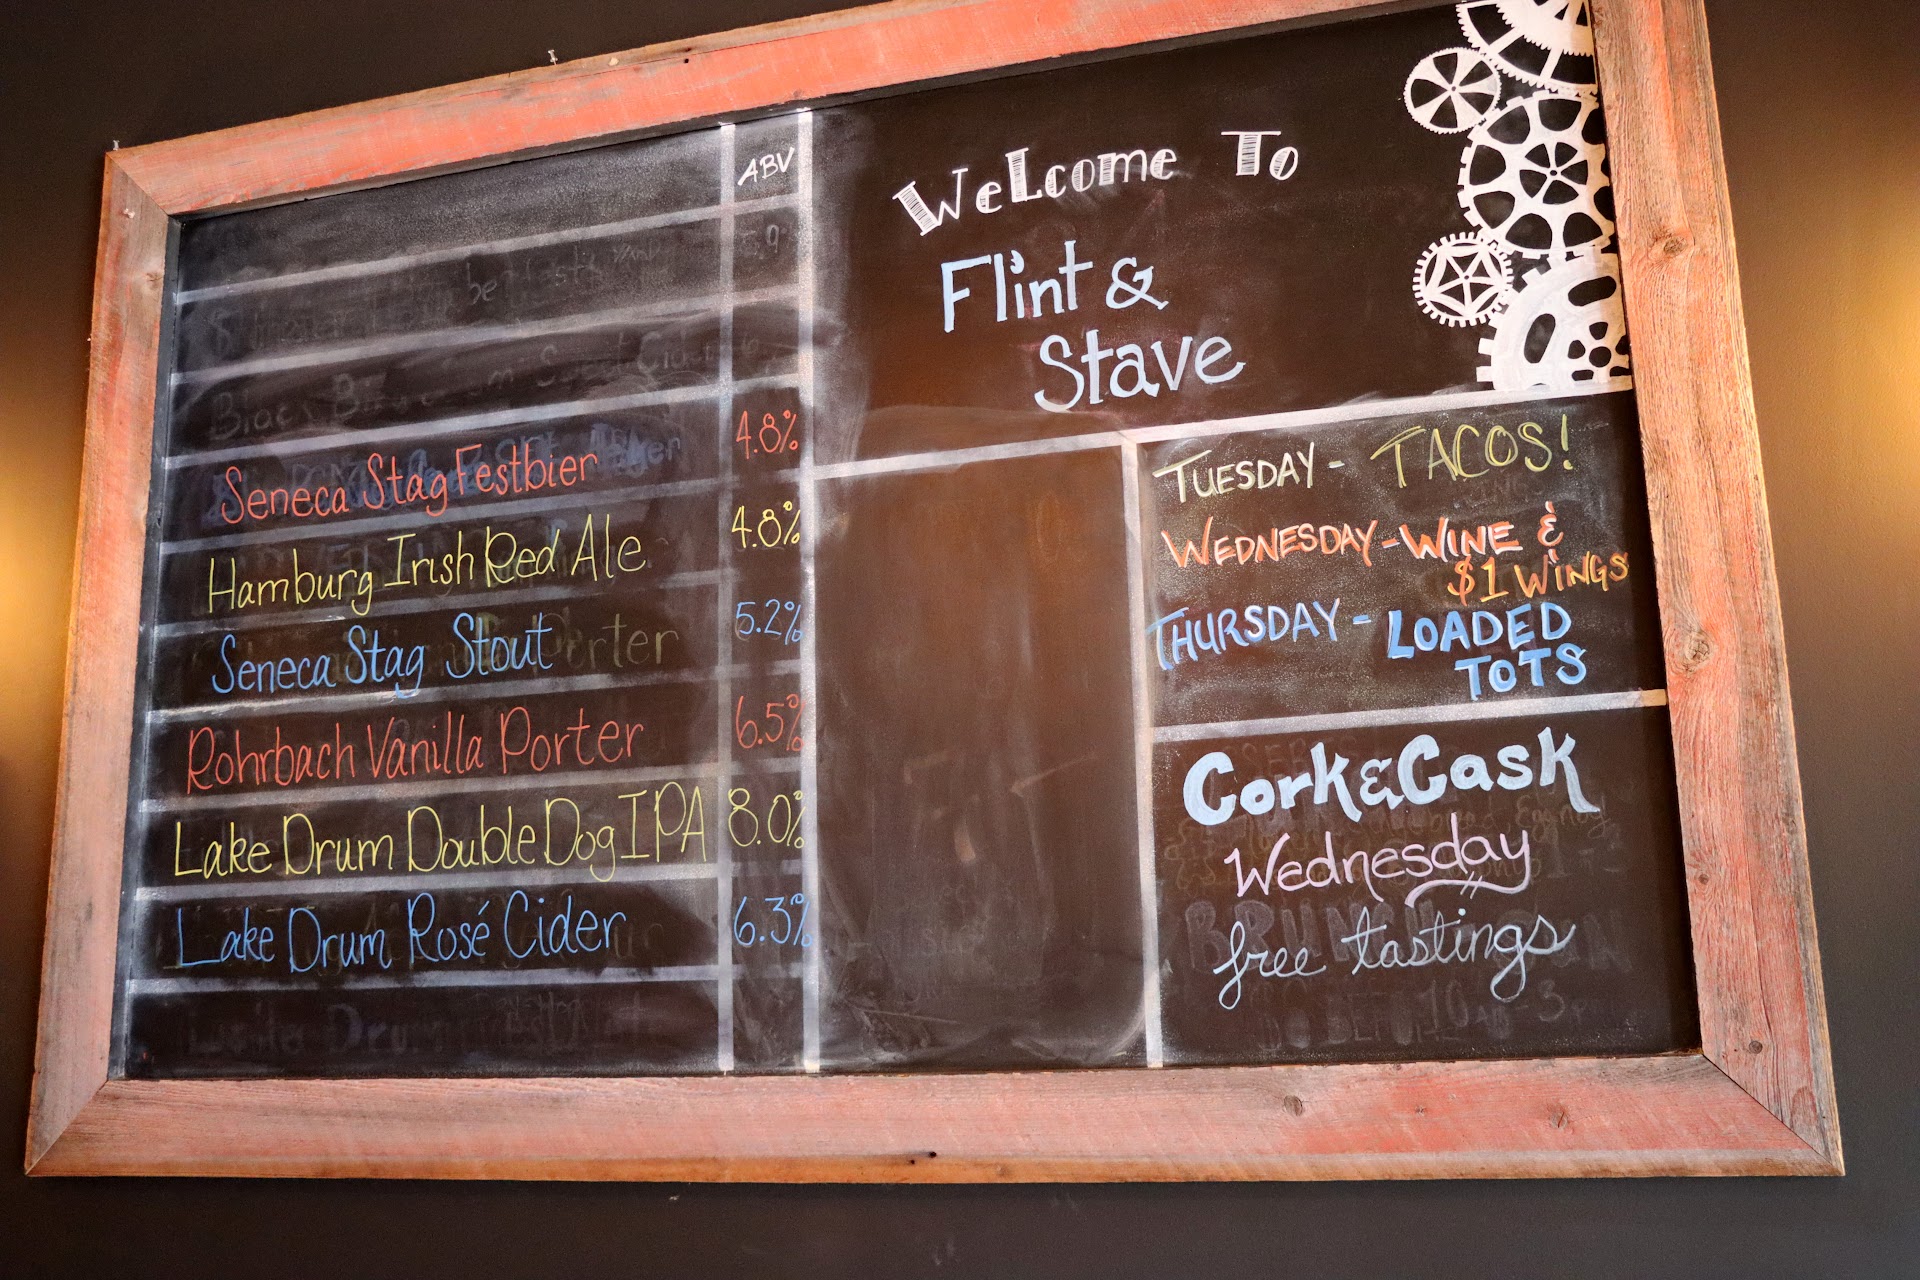 ABV
Seneca Stag Festbier 4.8%
Hamburg Irish Red Ale 4.8%
Seneca Stag Stout 5.2%
Rohrbach Vanilla Porter 6.5%
Lake Drum Double Dog IPA 8.0%
Lake Drum Rosé Cider 6.3%
Welcome To
Flint &
Stave
Tuesday - Tacos!
Wednesday - Wine &
$1 Wings
Thursday - Loaded
Tots
Cork & Cask
Wednesday
free tastings